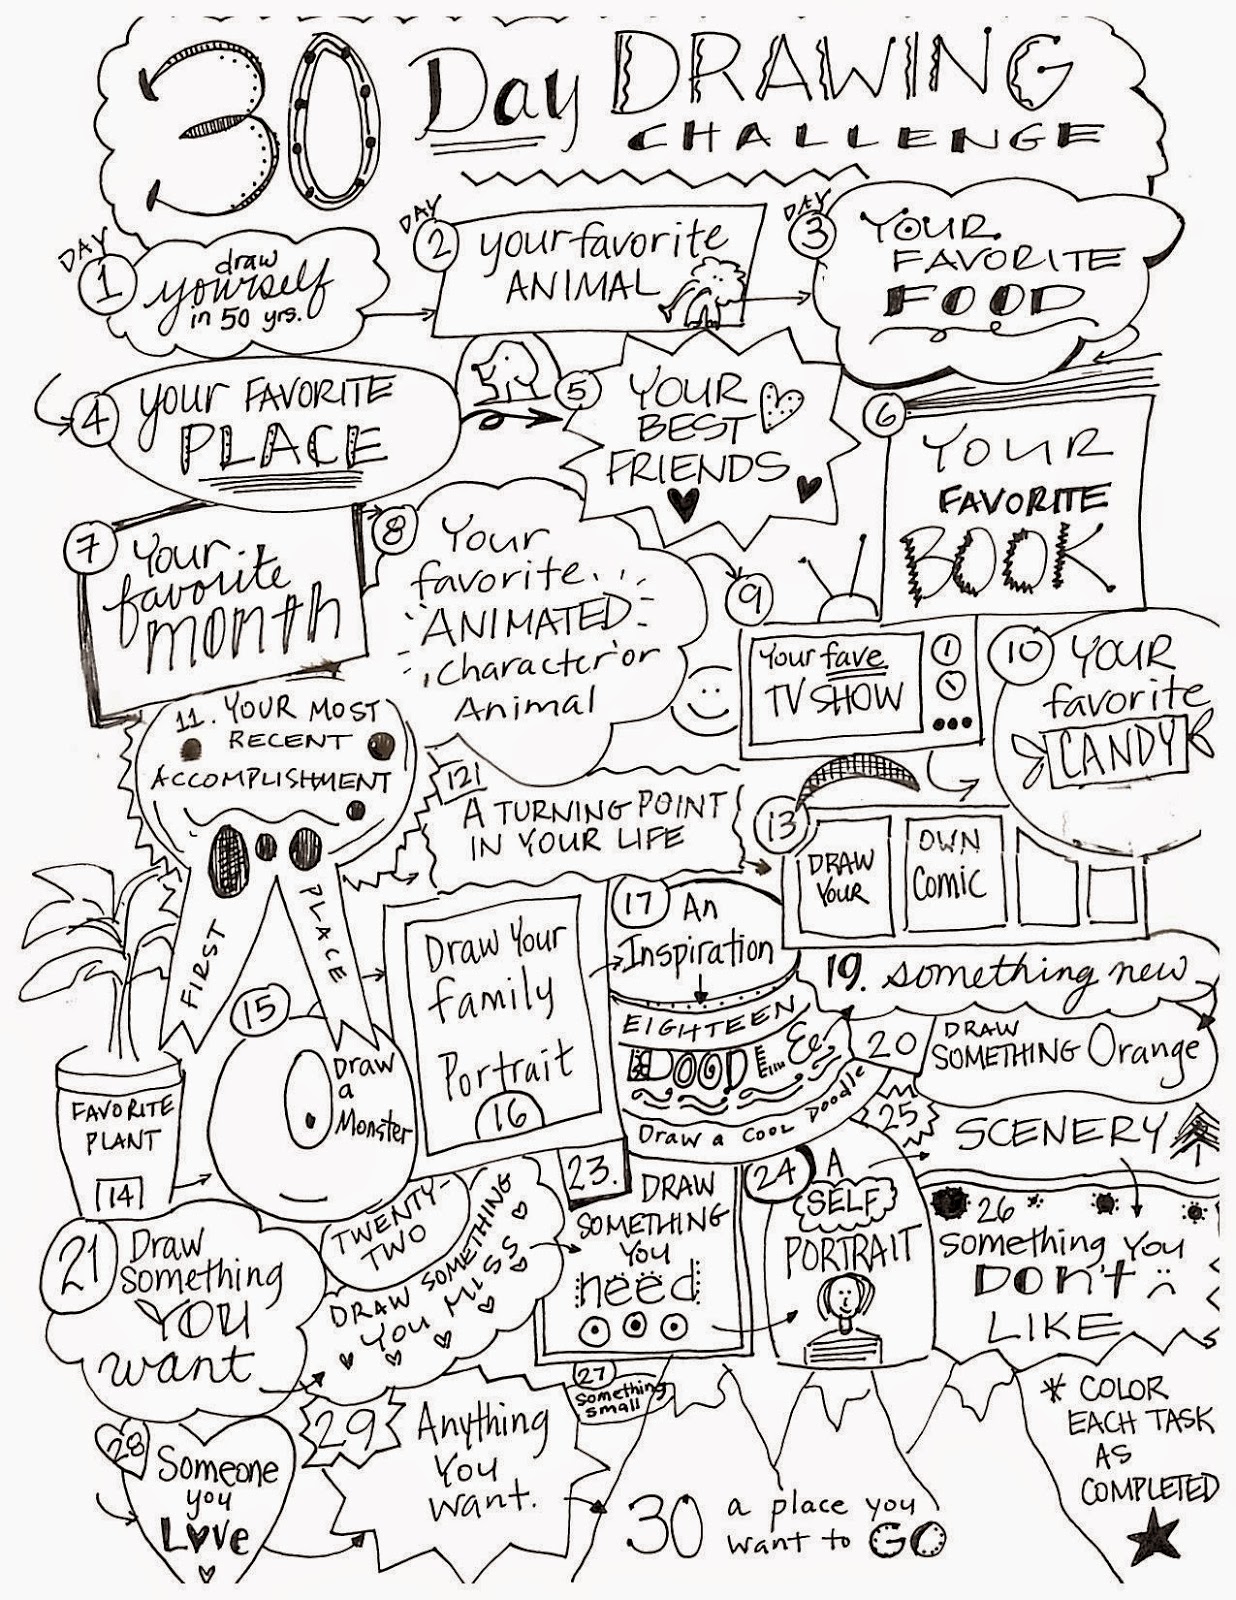 30 Day DRAWING
CHALLENGE
DAY
1
draw
yourself
in 50 yrs.
DAY
2
your favorite
ANIMAL
DAY
3
YOUR
FAVORITE
FOOD
4
your FAVORITE
PLACE
5
YOUR
BEST
FRIENDS
6
YOUR
FAVORITE
BOOK
7
Your
favorite
month
8
Your
favorite
ANIMATED
character or
Animal
9
Your fave
TV SHOW
10
YOUR
favorite
CANDY
11. YOUR MOST
RECENT
ACCOMPLISHMENT
FIRST
PLACE
12
A TURNING POINT
IN YOUR LIFE
13
DRAW
YOUR
OWN
Comic
FAVORITE
PLANT
14
15
Draw
a
Monster
Draw Your
family
Portrait
16
17
An
Inspiration
EIGHTEEN
DOODLE
Draw a cool Doodle
19. something new
20
DRAW
SOMETHING Orange
21
Draw
Something
YOU
want
TWENTY-
TWO
DRAW SOMETHING
YOU MISS
23.
DRAW
SOMETHING
YOU
need
24
A
SELF
PORTRAIT
25
SCENERY
26
Something You
DON't
LIKE
27
something
small
28
Someone
you
Love
29
Anything
You
want.
30 a place you
want to GO
* COLOR
EACH TASK
AS
COMPLETED